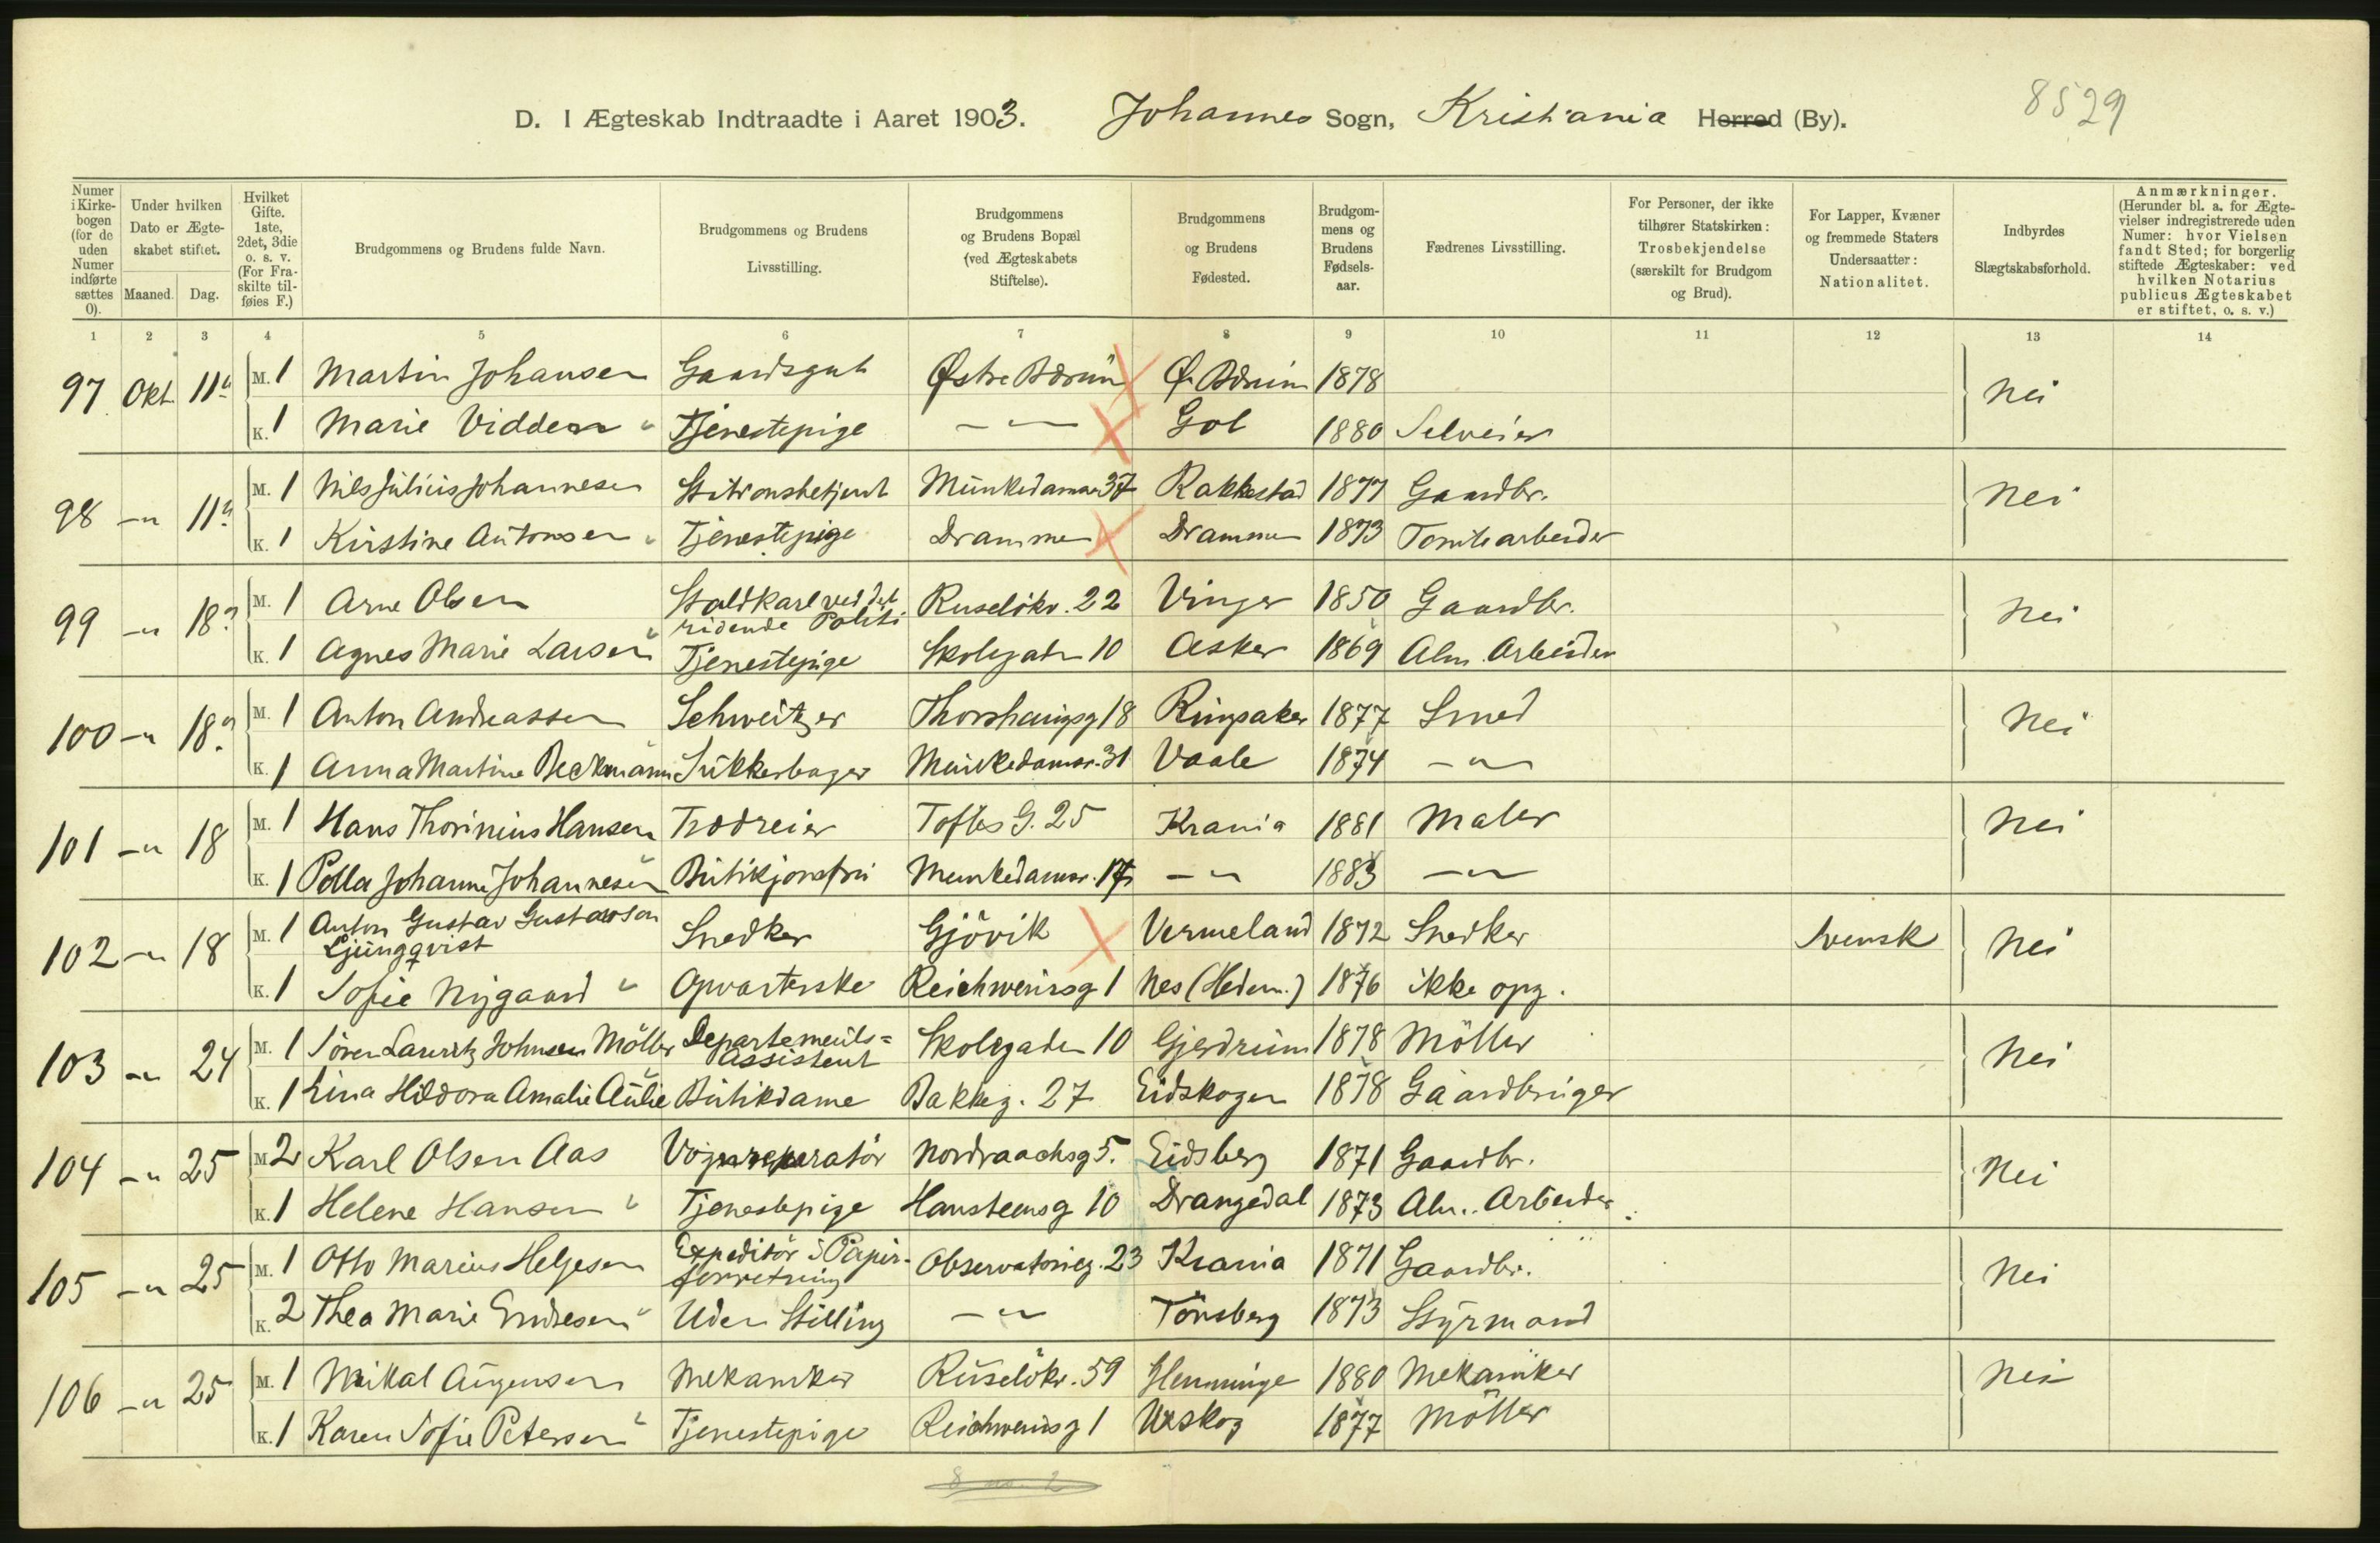 D. I Ægteskab Indtraadte i Aaret 1903. Johannes Sogn, Kristiania Herred (By).
8529
Numer i Kirkebogen (for de uden Numer indførte sættes 0).
Under hvilken Dato er Ægteskabet stiftet.
Maaned. Dag.
Hvilket Gifte. 1ste, 2det, 3die o. s. v. (For Fraskilte tilføies F.)
Brudgommens og Brudens fulde Navn.
Brudgommens og Brudens Livsstilling.
Brudgommens og Brudens Bopæl (ved Ægteskabets Stiftelse).
Brudgommens og Brudens Fødested.
Brudgommens og Brudens Fødselsaar.
Fædrenes Livsstilling.
For Personer, der ikke tilhører Statskirken: Trosbekjendelse (særskilt for Brudgom og Brud).
For Lapper, Kvæner og fremmede Staters Undersaatter: Nationalitet.
Indbyrdes Slægtskabsforhold.
Anmærkninger. (Herunder bl. a. for Ægtevielser indregistrerede uden Numer: hvor Vielsen fandt Sted; for borgerlig stiftede Ægteskaber: ved hvilken Notarius publicus Ægteskabet er stiftet, o. s. v.)
1 2 3 4 5 6 7 8 9 10 11 12 13 14
97 Okt 11 M. 1 Martin Johansen Gaardsgut Østre Bærum Ø. Bærum 1878 Nei
K. 1 Marie Vidden Tjenestepige - " - Gol 1880 Selveier
98 - " 11 M. 1 Nils Julius Johannesen Stationsbetjent Munkedamsv 37 Rakkestad 1877 Gaardbr. Nei
K. 1 Kirstine Antonsen Tjenestepige Drammen Drammen 1873 Tomtearbeider
99 - " 18 M. 1 Arne Olsen Staldkarl ved det ridende Politi Ruseløkv. 22 Vinger 1850 Gaardbr. Nei
K. 1 Agnes Marie Larsen Tjenestepige Skolegaten 10 Asker 1869 Alm. Arbeider
100 - " 18 M. 1 Anton Andreassen Schweitzer Thorshaugsg 18 Ringsaker 1877 Smed Nei
K. 1 Anna Martine Beckmann Sukkerbager Munkedamsv. 31 Vaale 1874 - " -
101 - " 18 M. 1 Hans Thorinius Hansen Trædreier Toftes G. 25 Krania 1881 Maler Nei
K. 1 Polla Johanne Johannesen Butikjomfru Munkedamsv. 17 - " 1883 - " -
102 - " 18 M. 1 Anton Gustav Gustavson Ljungqvist Snedker Gjövik Vermeland 1872 Snedker Svensk Nei
K. 1 Sofie Nygaard Opvarterske Reichweinsg 1 Nes (Hedem.) 1876 ikke opg.
103 - " 24 M. 1 Sören Lauritz Johnsen Möller Departements= Assistent Skolegaden 10 Gjerdrum 1878 Möller Nei
K. 1 Lina Hildora Amalie Aulie Butikdame Bakkeg. 27 Eidskogen 1878 Gaardbruger
104 - " 25 M. 2 Karl Olsen Aas Vognreparatör Nordraachsg 5. Eidsberg 1871 Gaardbr. Nei
K. 1 Helene Hansen Tjenestepige Hansteensg 10 Drangedal 1873 Alm. Arbeider
105 - " 25 M. 1 Otto Marius Helgesen Expeditör i Papirforretning Observatorieg. 23 Krania 1871 Gaardbr. Nei
K. 2 Thea Marie Endresen Uden Stilling - " - Tönsberg 1873 Styrmand
106 - " 25 M. 1 Mikal Augensen Mekaniker Ruselökv. 59 Hemminge 1880 Mekaniker Nei
K. 1 Karen Sofie Petersen Tjenestepige Reichweinsg 1 Urskog 1877 Möller